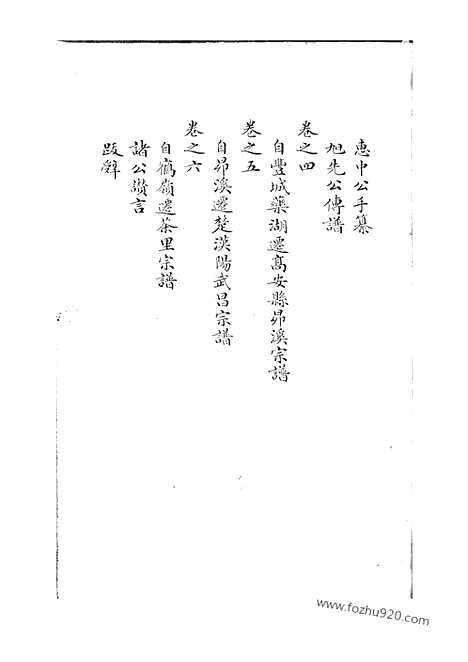 惠中公手纂
旭先公傳譜
卷之四
自豐城藥湖遷高安縣昴溪宗譜
卷之五
自昴溪遷楚漢陽武昌宗譜
卷之六
自鶴嶺遷茶里宗譜
諸公讚言
跋辭
www.fozhu920.com